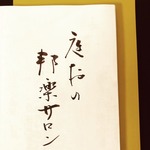 庭おの
邦楽サロン